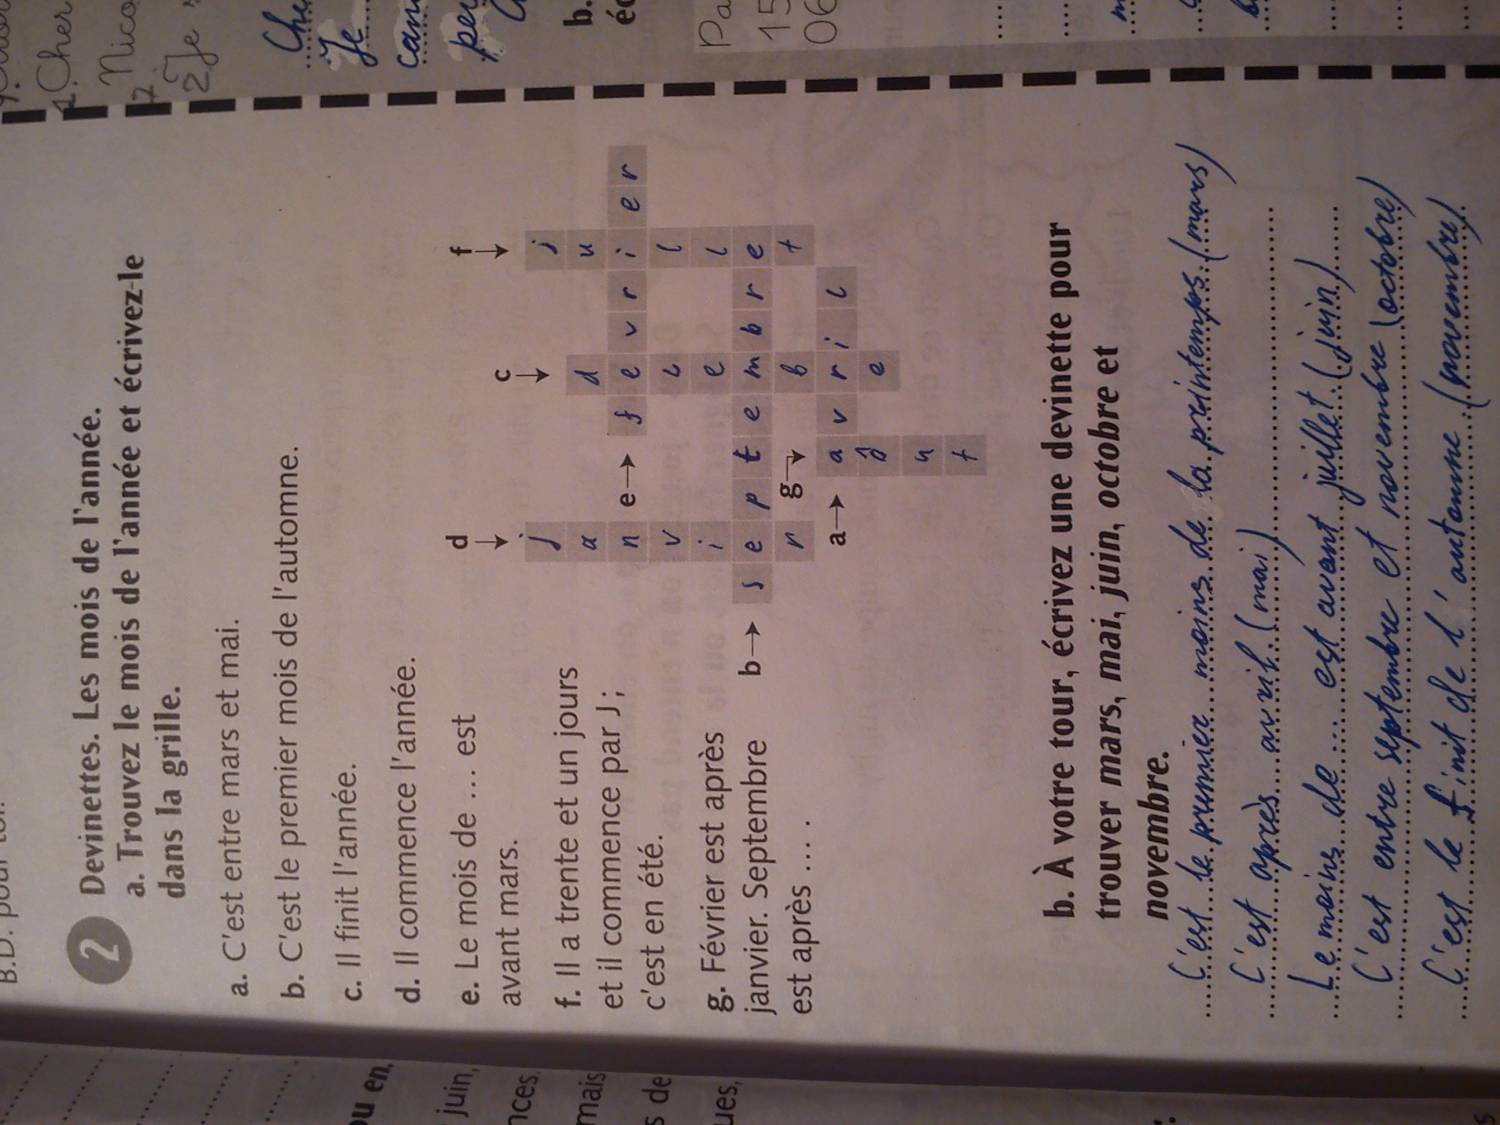 2 Devinettes. Les mois de l'année.
a. Trouvez le mois de l'année et écrivez-le
dans la grille.
a. C'est entre mars et mai.
b. C'est le premier mois de l'automne.
c. Il finit l'année.
d. Il commence l'année.
e. Le mois de ... est
avant mars.
f. Il a trente et un jours
et il commence par J ;
c'est en été.
g. Février est après
janvier. Septembre
est après ....
d f
c
j j
a d u
n e→ f e v r i e r
v c l
i e l
b→ s e p t e m b r e
r g b t
a→ a v r i l
o e
u
t
b. À votre tour, écrivez une devinette pour
trouver mars, mai, juin, octobre et
novembre.
C'est le premier moins de la printemps (mars)
C'est après avril (mai)
Le moins de ... est avant juillet (juin)
C'est entre septembre et novembre (octobre)
C'est le finit de l'automne (novembre)
B.D. pour
ou en,
juin,
nces.
mais
s de
ues,
Cher
Nico
2 Je
Che
Je
cam
per
b.
éc
Pa
15
06